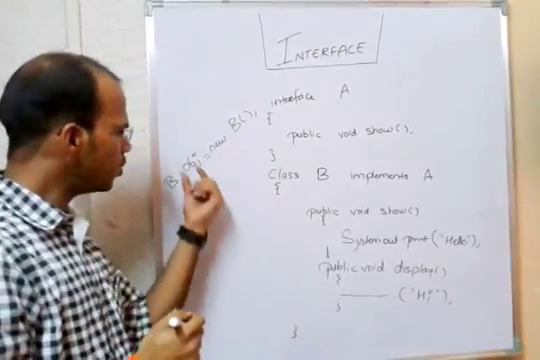 INTERFACE
interface A
{
public void show();
}
Class B implements A
{
public void show()
{
System out print ("Hello");
}
public void display()
{
("Hi");
}
}
B obj = new B();